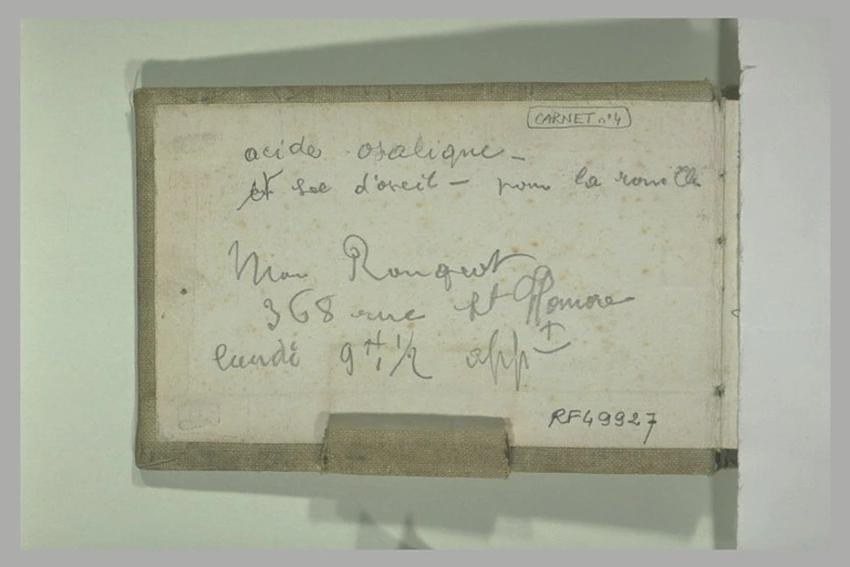 CARNET n°4
acide oxalique -
et sel d'oseil - pour la rouille
Mon Rouquet
368 rue St Honore
lundi 9H 1/2 appt
RF49927